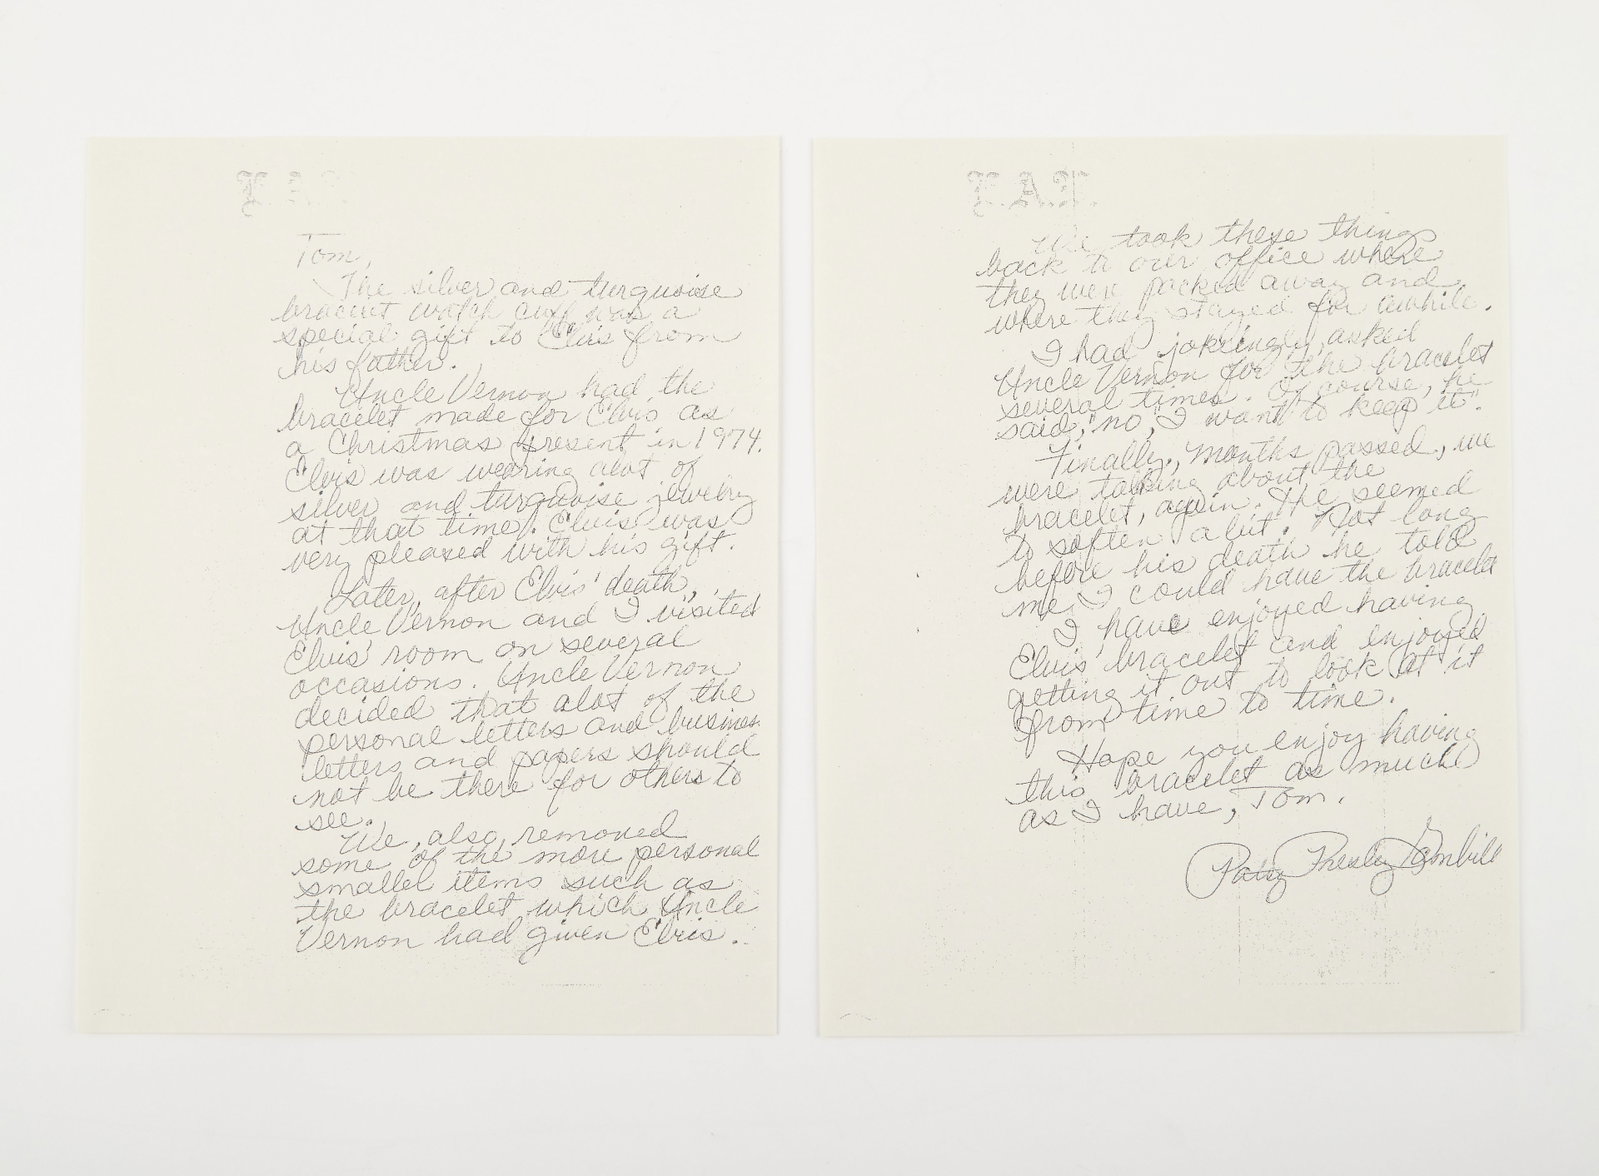 Tom,
The silver and turquoise
bracelet watch cuff was a
special gift to Elvis from
his father.
Uncle Vernon had the
bracelet made for Elvis as
a Christmas present in 1974.
Elvis was wearing alot of
silver and turquoise jewelry
at that time. Elvis was
very pleased with his gift.
Later, after Elvis' death,
Uncle Vernon and I visited
Elvis' room on several
occasions. Uncle Vernon
decided that alot of the
personal letters and business
letters and papers should
not be there for others to
see.
We, also, removed
some of the more personal
smaller items such as
the bracelet which Uncle
Vernon had given Elvis.
E.A.P.
We took these things
back to our office where
they were packed away and
where they stayed for awhile.
I had jokingly asked
Uncle Vernon for the bracelet
several times. Of course, he
said, "no, I want to keep it".
Finally, months passed, we
were talking about the
bracelet, again. He seemed
to soften a bit. Not long
before his death he told
me I could have the bracelet
I have enjoyed having
Elvis' bracelet and enjoyed
getting it out to look at it
from time to time.
Hope you enjoy having
this bracelet as much
as I have, Tom.
Patsy Presley Gambill